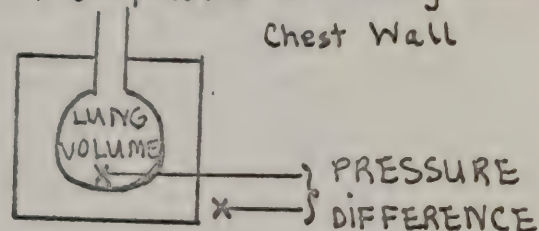 Chest Wall
LUNG
VOLUME
PRESSURE
DIFFERENCE